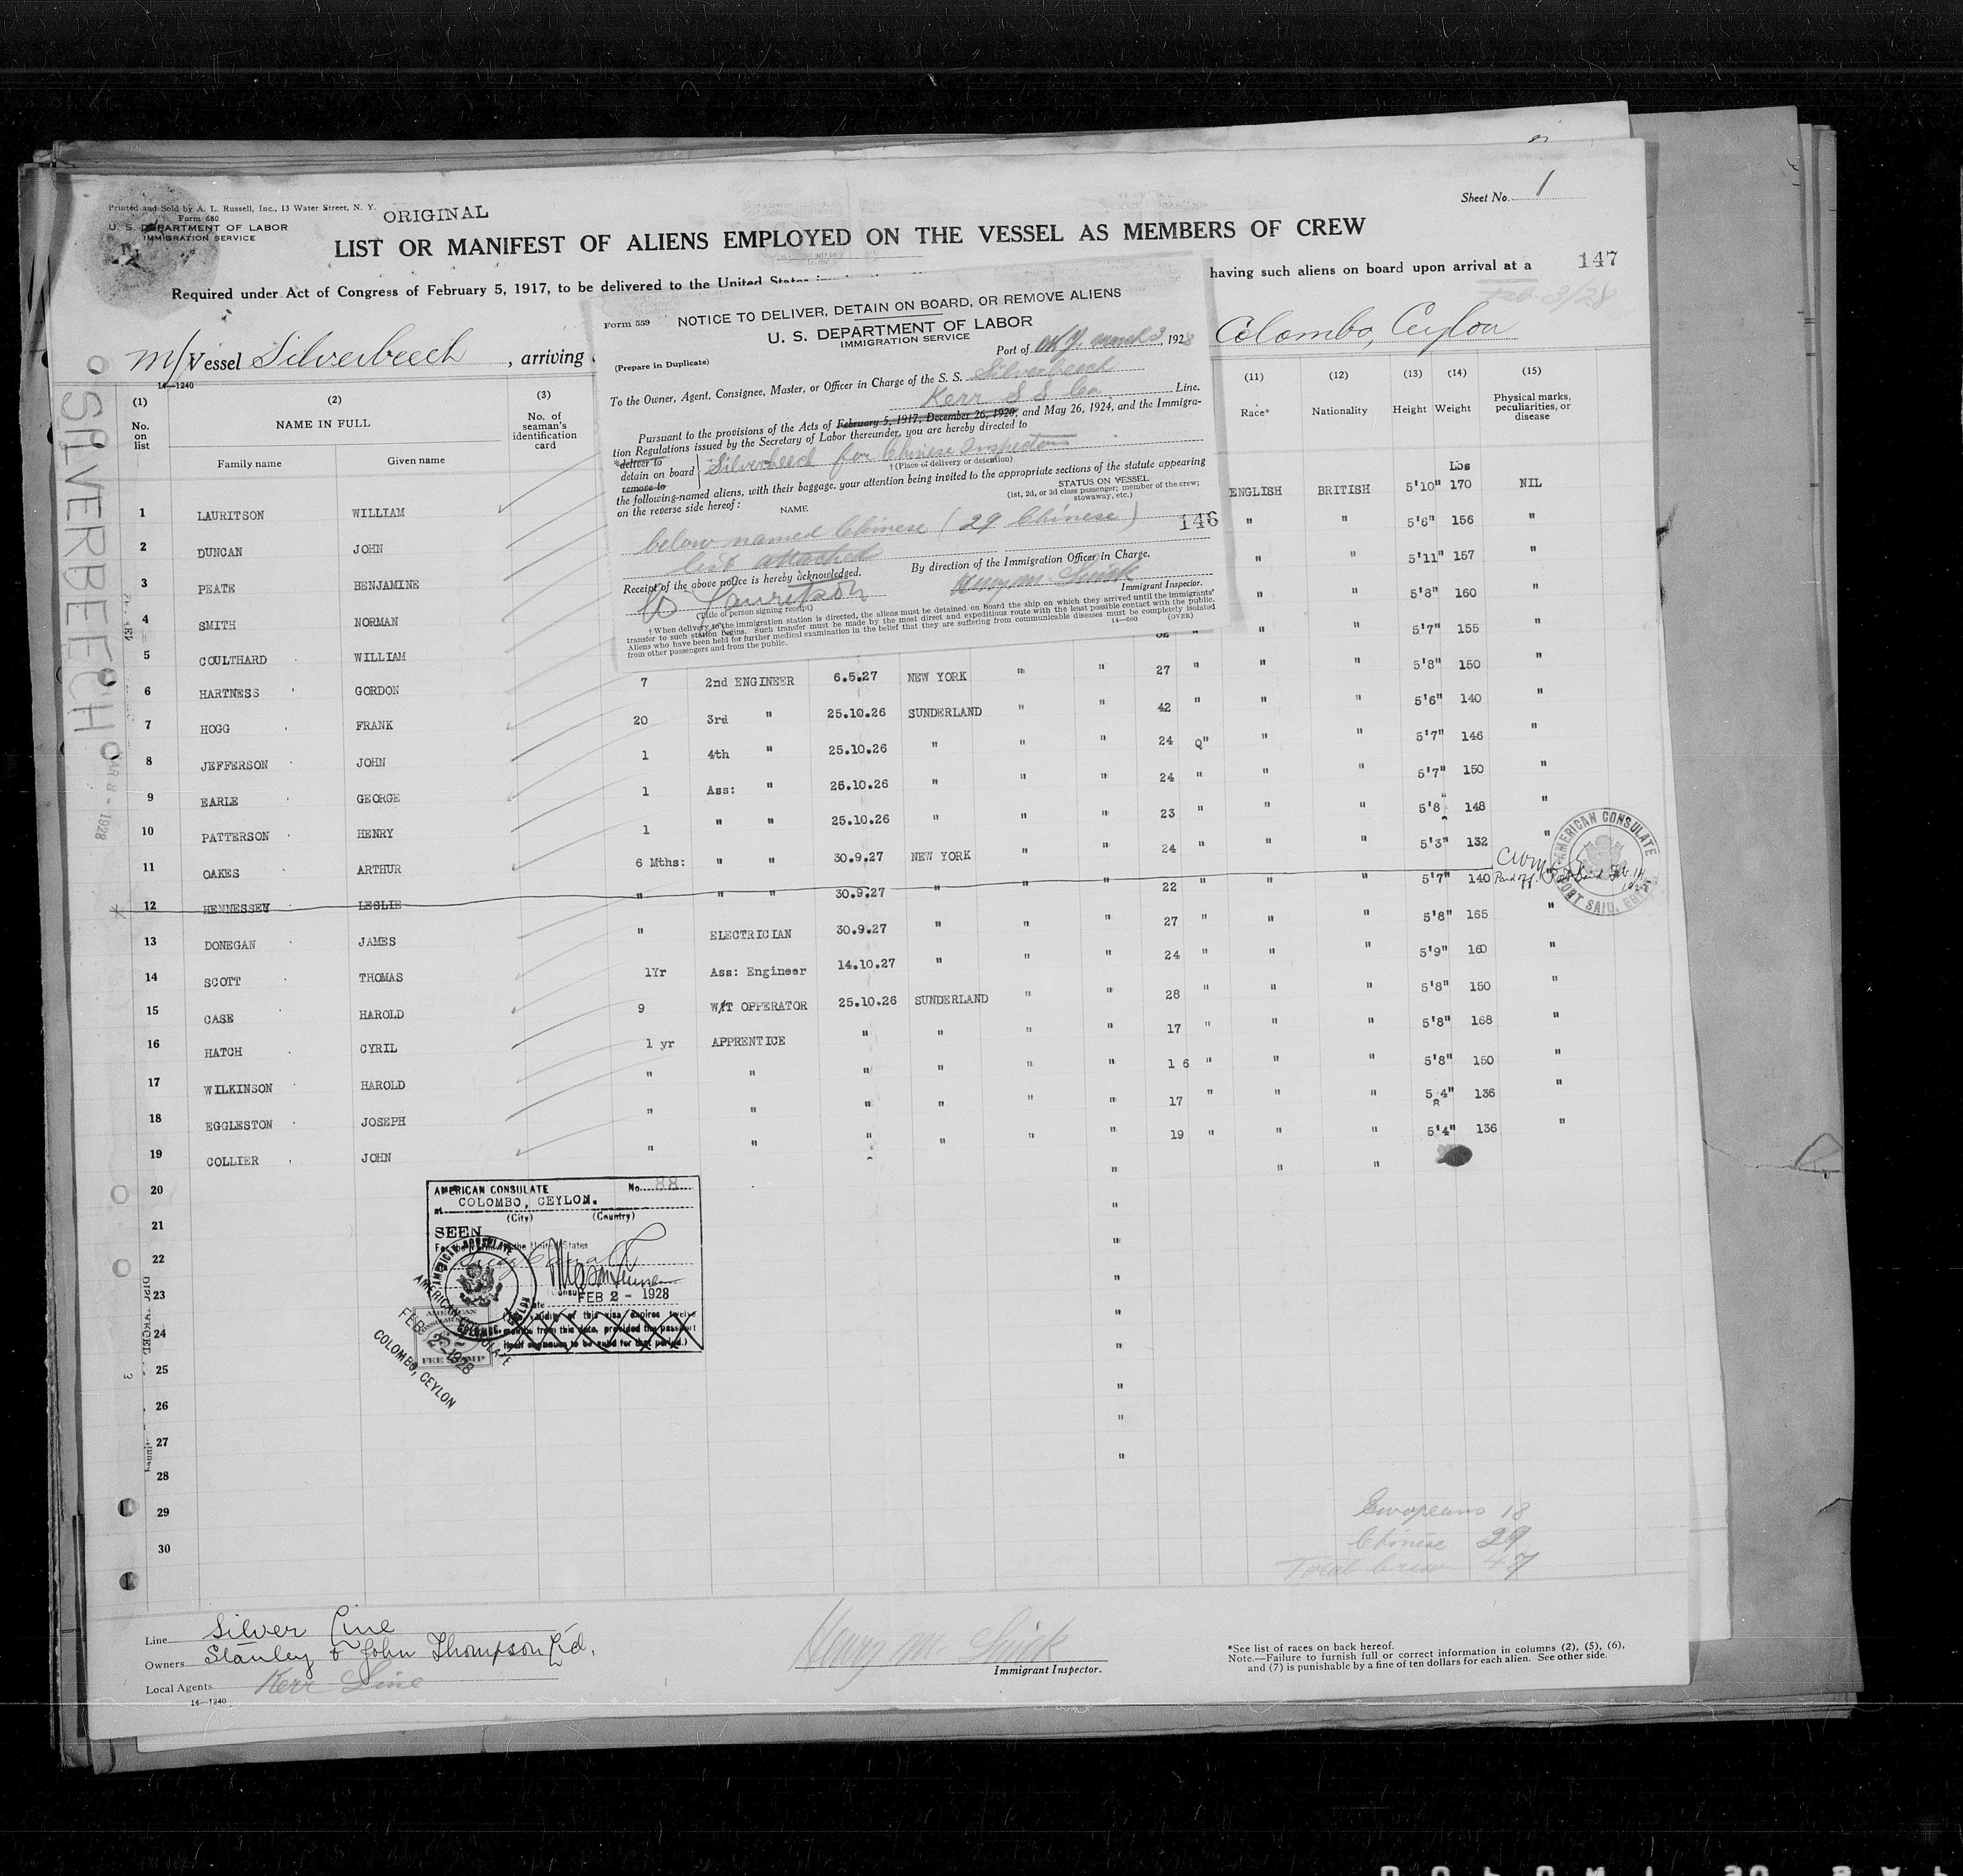 Sheet No. 1
Printed and Sold by A. L. Russell, Inc., 13 Water Street, N. Y.
Form 680
U. S. DEPARTMENT OF LABOR
IMMIGRATION SERVICE
ORIGINAL
LIST OR MANIFEST OF ALIENS EMPLOYED ON THE VESSEL AS MEMBERS OF CREW
147
Required under Act of Congress of February 5, 1917, to be delivered to the United States
having such aliens on board upon arrival at a
Feb. 3/28
M/Vessel Silverbeech, arriving
Colombo, Ceylon
14—1240
SILVERBEECH
MAR 8 - 1928
Form 559
NOTICE TO DELIVER, DETAIN ON BOARD, OR REMOVE ALIENS
U. S. DEPARTMENT OF LABOR
IMMIGRATION SERVICE
(Prepare in Duplicate)
Port of N.Y. March 3, 1928
To the Owner, Agent, Consignee, Master, or Officer in Charge of the S. S. Silverbeech
Kerr S S Co. Line.
Pursuant to the provisions of the Acts of February 5, 1917, December 26, 1920, and May 26, 1924, and the Immigra-
tion Regulations issued by the Secretary of Labor thereunder, you are hereby directed to
*deliver to
detain on board
remove to
Silverbeech for Chinese Inspector
† (Place of delivery or detention)
the following-named aliens, with their baggage, your attention being invited to the appropriate sections of the statute appearing
on the reverse side hereof:
NAME
STATUS ON VESSEL
(1st, 2d, or 3d class passenger; member of the crew;
stowaway, etc.)
below named Chinese (29 Chinese)
146
list attached
By direction of the Immigration Officer in Charge.
Receipt of the above notice is hereby acknowledged.
W Lauritson
Henry M. Smick
Immigrant Inspector.
(Title of person signing receipt)
† When delivery to the immigration station is directed, the aliens must be detained on board the ship on which they arrived until the immigrants'
transfer to such station begins. Such transfer must be made by the most direct and expeditious route with the least possible contact with the public.
Aliens who have been held for further medical examination in the belief that they are suffering from communicable diseases must be completely isolated
from other passengers and from the public.
14—660
(OVER)
(1) (2) (3) (11) (12) (13) (14) (15)
No. on list
NAME IN FULL
Family name
Given name
No. of seaman's identification card
Race*
Nationality
Height
Weight
Physical marks, peculiarities, or disease
Lbs
1 LAURITSON WILLIAM ENGLISH BRITISH 5'10" 170 NIL
2 DUNCAN JOHN " " 5'6" 156 "
3 PEATE BENJAMINE " " 5'11" 157 "
4 SMITH NORMAN " " 5'8" 160 "
5 COULTHARD WILLIAM " " 5'7" 155 "
6 HARTNESS GORDON 7 2nd ENGINEER 6.5.27 NEW YORK " " 27 " " " 5'8" 150 "
7 HOGG FRANK 20 3rd " 25.10.26 SUNDERLAND " " 42 " " " 5'6" 140 "
8 JEFFERSON JOHN 1 4th " 25.10.26 " " " 24 " " " 5'7" 146 "
9 EARLE GEORGE 1 Ass: " 25.10.26 " " " 24 " " " 5'7" 150 "
10 PATTERSON HENRY 1 " " 25.10.26 " " " 23 " " " 5'8" 148 "
11 OAKES ARTHUR 6 Mths: " " 30.9.27 NEW YORK " " 24 " " " 5'3" 132 "
12 HENNESSEY LESLIE " " " 30.9.27 " " " 22 " " 5'7" 140 Paid off. Port Said Feb. 14
13 DONEGAN JAMES " ELECTRICIAN 30.9.27 " " " 27 " " " 5'8" 165 "
14 SCOTT THOMAS 1Yr Ass: Engineer 14.10.27 " " " 24 " " " 5'9" 160 "
15 CASE HAROLD 9 W/T OPPERATOR 25.10.26 SUNDERLAND " " 28 " " " 5'8" 150 "
16 HATCH CYRIL 1 yr APPRENTICE " " " " 17 " " " 5'8" 168 "
17 WILKINSON HAROLD " " " " " " 1 6 " " " 5'8" 150 "
18 EGGLESTON JOSEPH " " " " " " 17 " " " 5'4" 136 "
19 COLLIER JOHN " " " " " " 19 " " " 5'4" 136 "
20 " " "
21 "
22 "
23 "
24 "
25 "
26 "
27 "
28 "
29
30
AMERICAN CONSULATE
PORT SAID, EGYPT
AMERICAN CONSULATE No. 88
at COLOMBO, CEYLON.
(City) (Country)
SEEN
For the United States
Date FEB 2 - 1928
The validity of this visa expires twelve
months from this date, provided the passport
itself continues to be valid for that period.)
AMERICAN CONSULATE
COLOMBO, CEYLON
AMERICAN
FEE STAMP
AMERICAN CONSULATE
FEB 2 - 1928
COLOMBO, CEYLON
Europeans 18
Chinese 29
Total Crew 47
Line Silver Line
Owners Stanley & John Thompson Ltd.
Local Agents Kerr Line
14—1240
Henry M. Smick
Immigrant Inspector.
*See list of races on back hereof.
Note.—Failure to furnish full or correct information in columns (2), (5), (6),
and (7) is punishable by a fine of ten dollars for each alien. See other side.